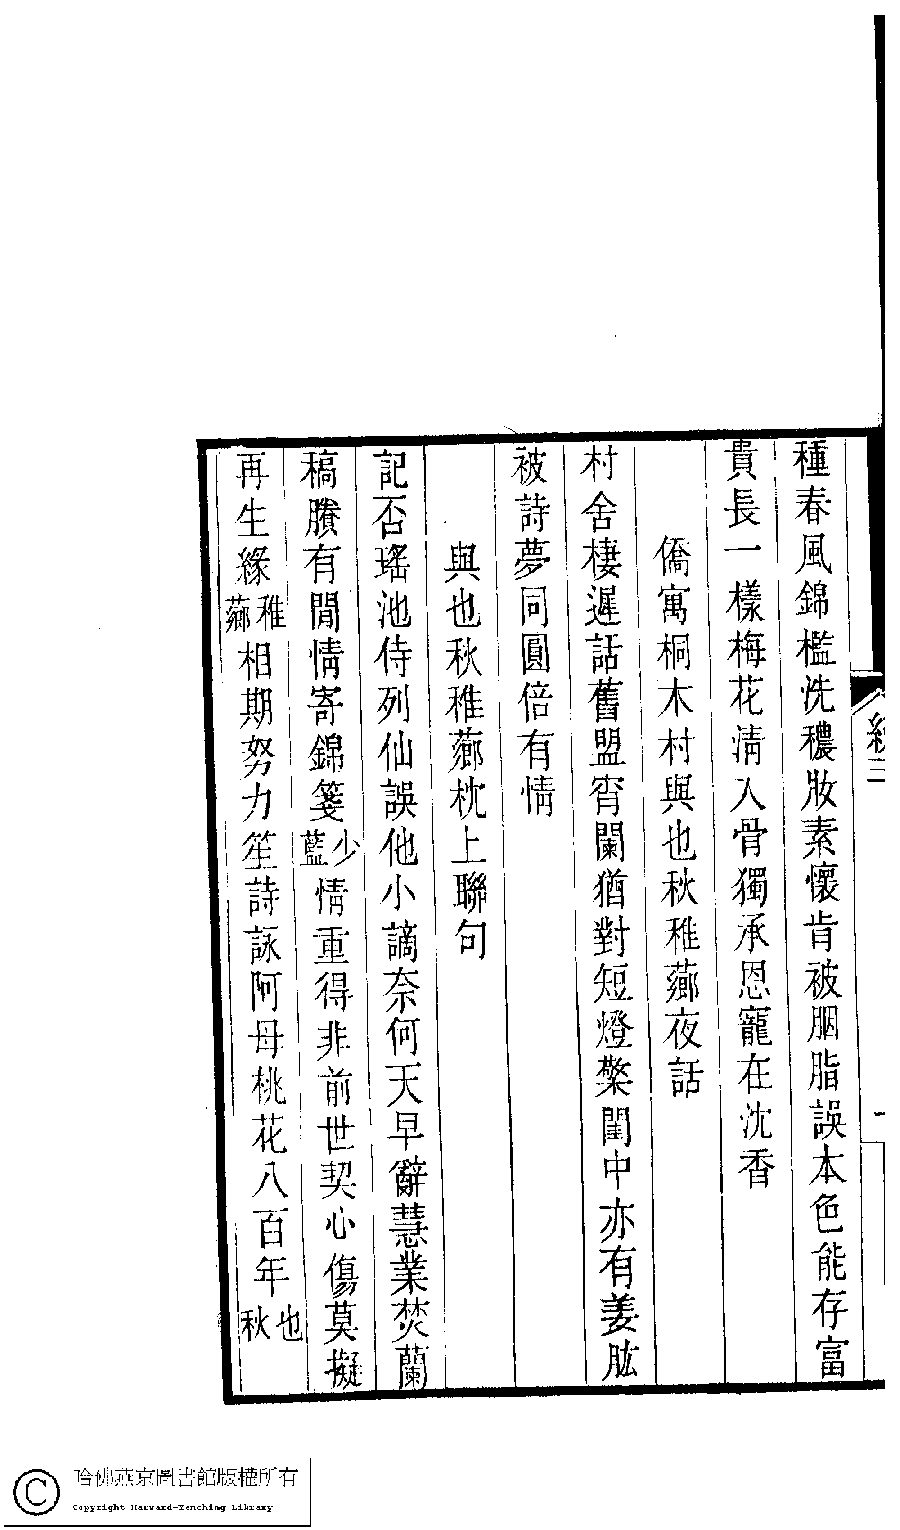 種春風錦檻洗穠妝素懷肯被胭脂誤本色能存富
貴長一樣梅花淸入骨獨承恩寵在沈香
僑寓桐木村與也秋稚薌夜話
村舍棲遲話舊盟宵闌猶對短燈檠閨中亦有姜肱
被詩夢同圓倍有情
與也秋稚薌枕上聯句
記否瑤池侍列仙誤他小謫奈何天早辭慧業焚蘭
稿賸有閒情寄錦箋少藍情重得非前世契心傷莫擬
再生緣稚薌相期努力笙詩詠阿母桃花八百年也秋
哈佛燕京圖書館版權所有
Copyright Harvard-Yenching Library